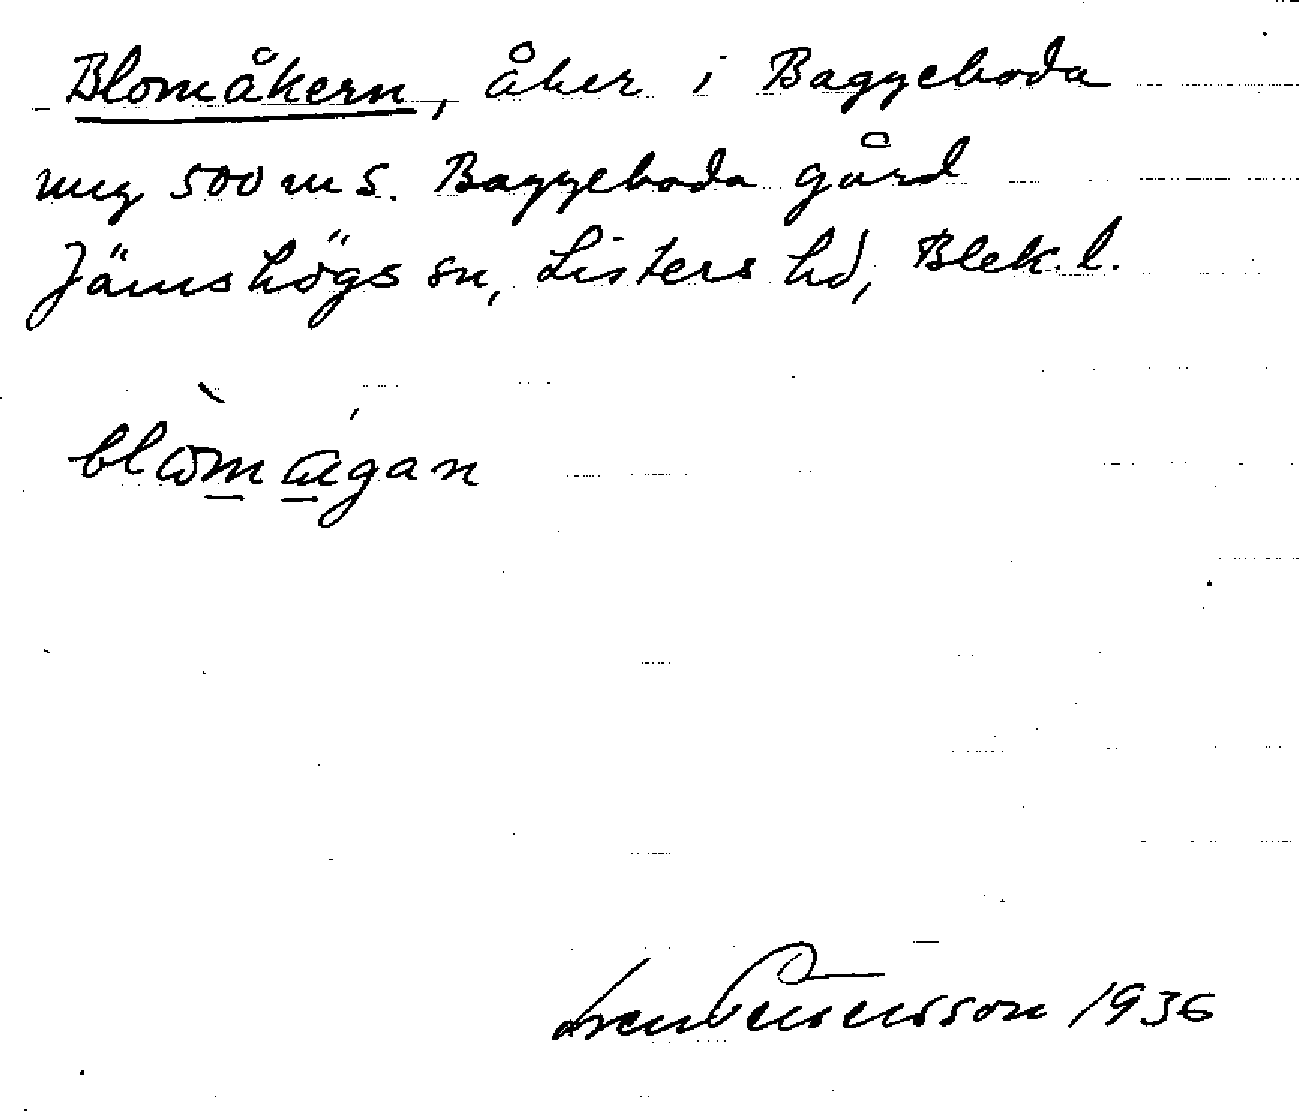 Blomåkern, åker i Baggeboda
ung 500 m S. Baggeboda gård
Jämshögs sn, Listers hd, Blek. l.
blòmágan
Sven Svensson 1936